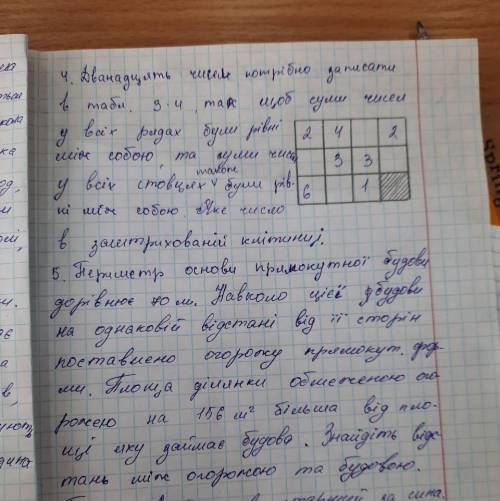 4. Дванадцять чисел потрібно записати
в табл. 3·4, так щоб суми чисел
у всіх рядах були рівні
між собою, та суми чисел
також
у всіх стовцях були рів-
ні між собою. Яке число
в заштрихованій клітинці.
2 4 2
3 3
6 1
5. Периметр основи прямокутної будови
дорівнює 70 м. Навколо цієї будови
на однаковій відстані від її сторін
поставлено огорожу прямокут. фор-
ми. Площа ділянки обмеженою ого
рожею на 156 м² більша від пло-
щі яку займає будова. Знайдіть відс
тань між огорожою та будовою.